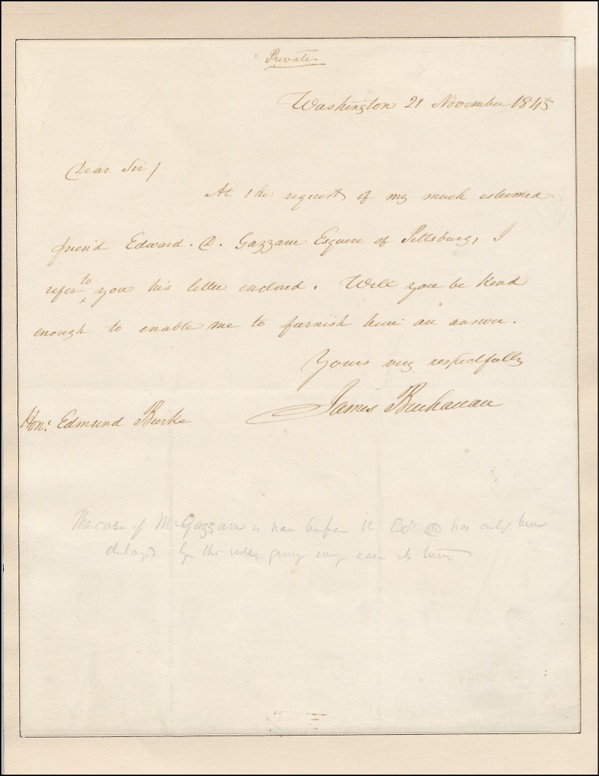 Private
Washington 21 November 1845
Dear Sir/
At the request of my much esteemed
friend Edward. D. Gazzam Esquire of Pittsburg, I
refer to you his letter enclosed. Will you be kind
enough to enable me to furnish him an answer.
Yours very respectfully
James Buchanan
Hon: Edmund Burke
The case of Mr Gazzam is now before the has only been
delayed by the rules giving every case its turn